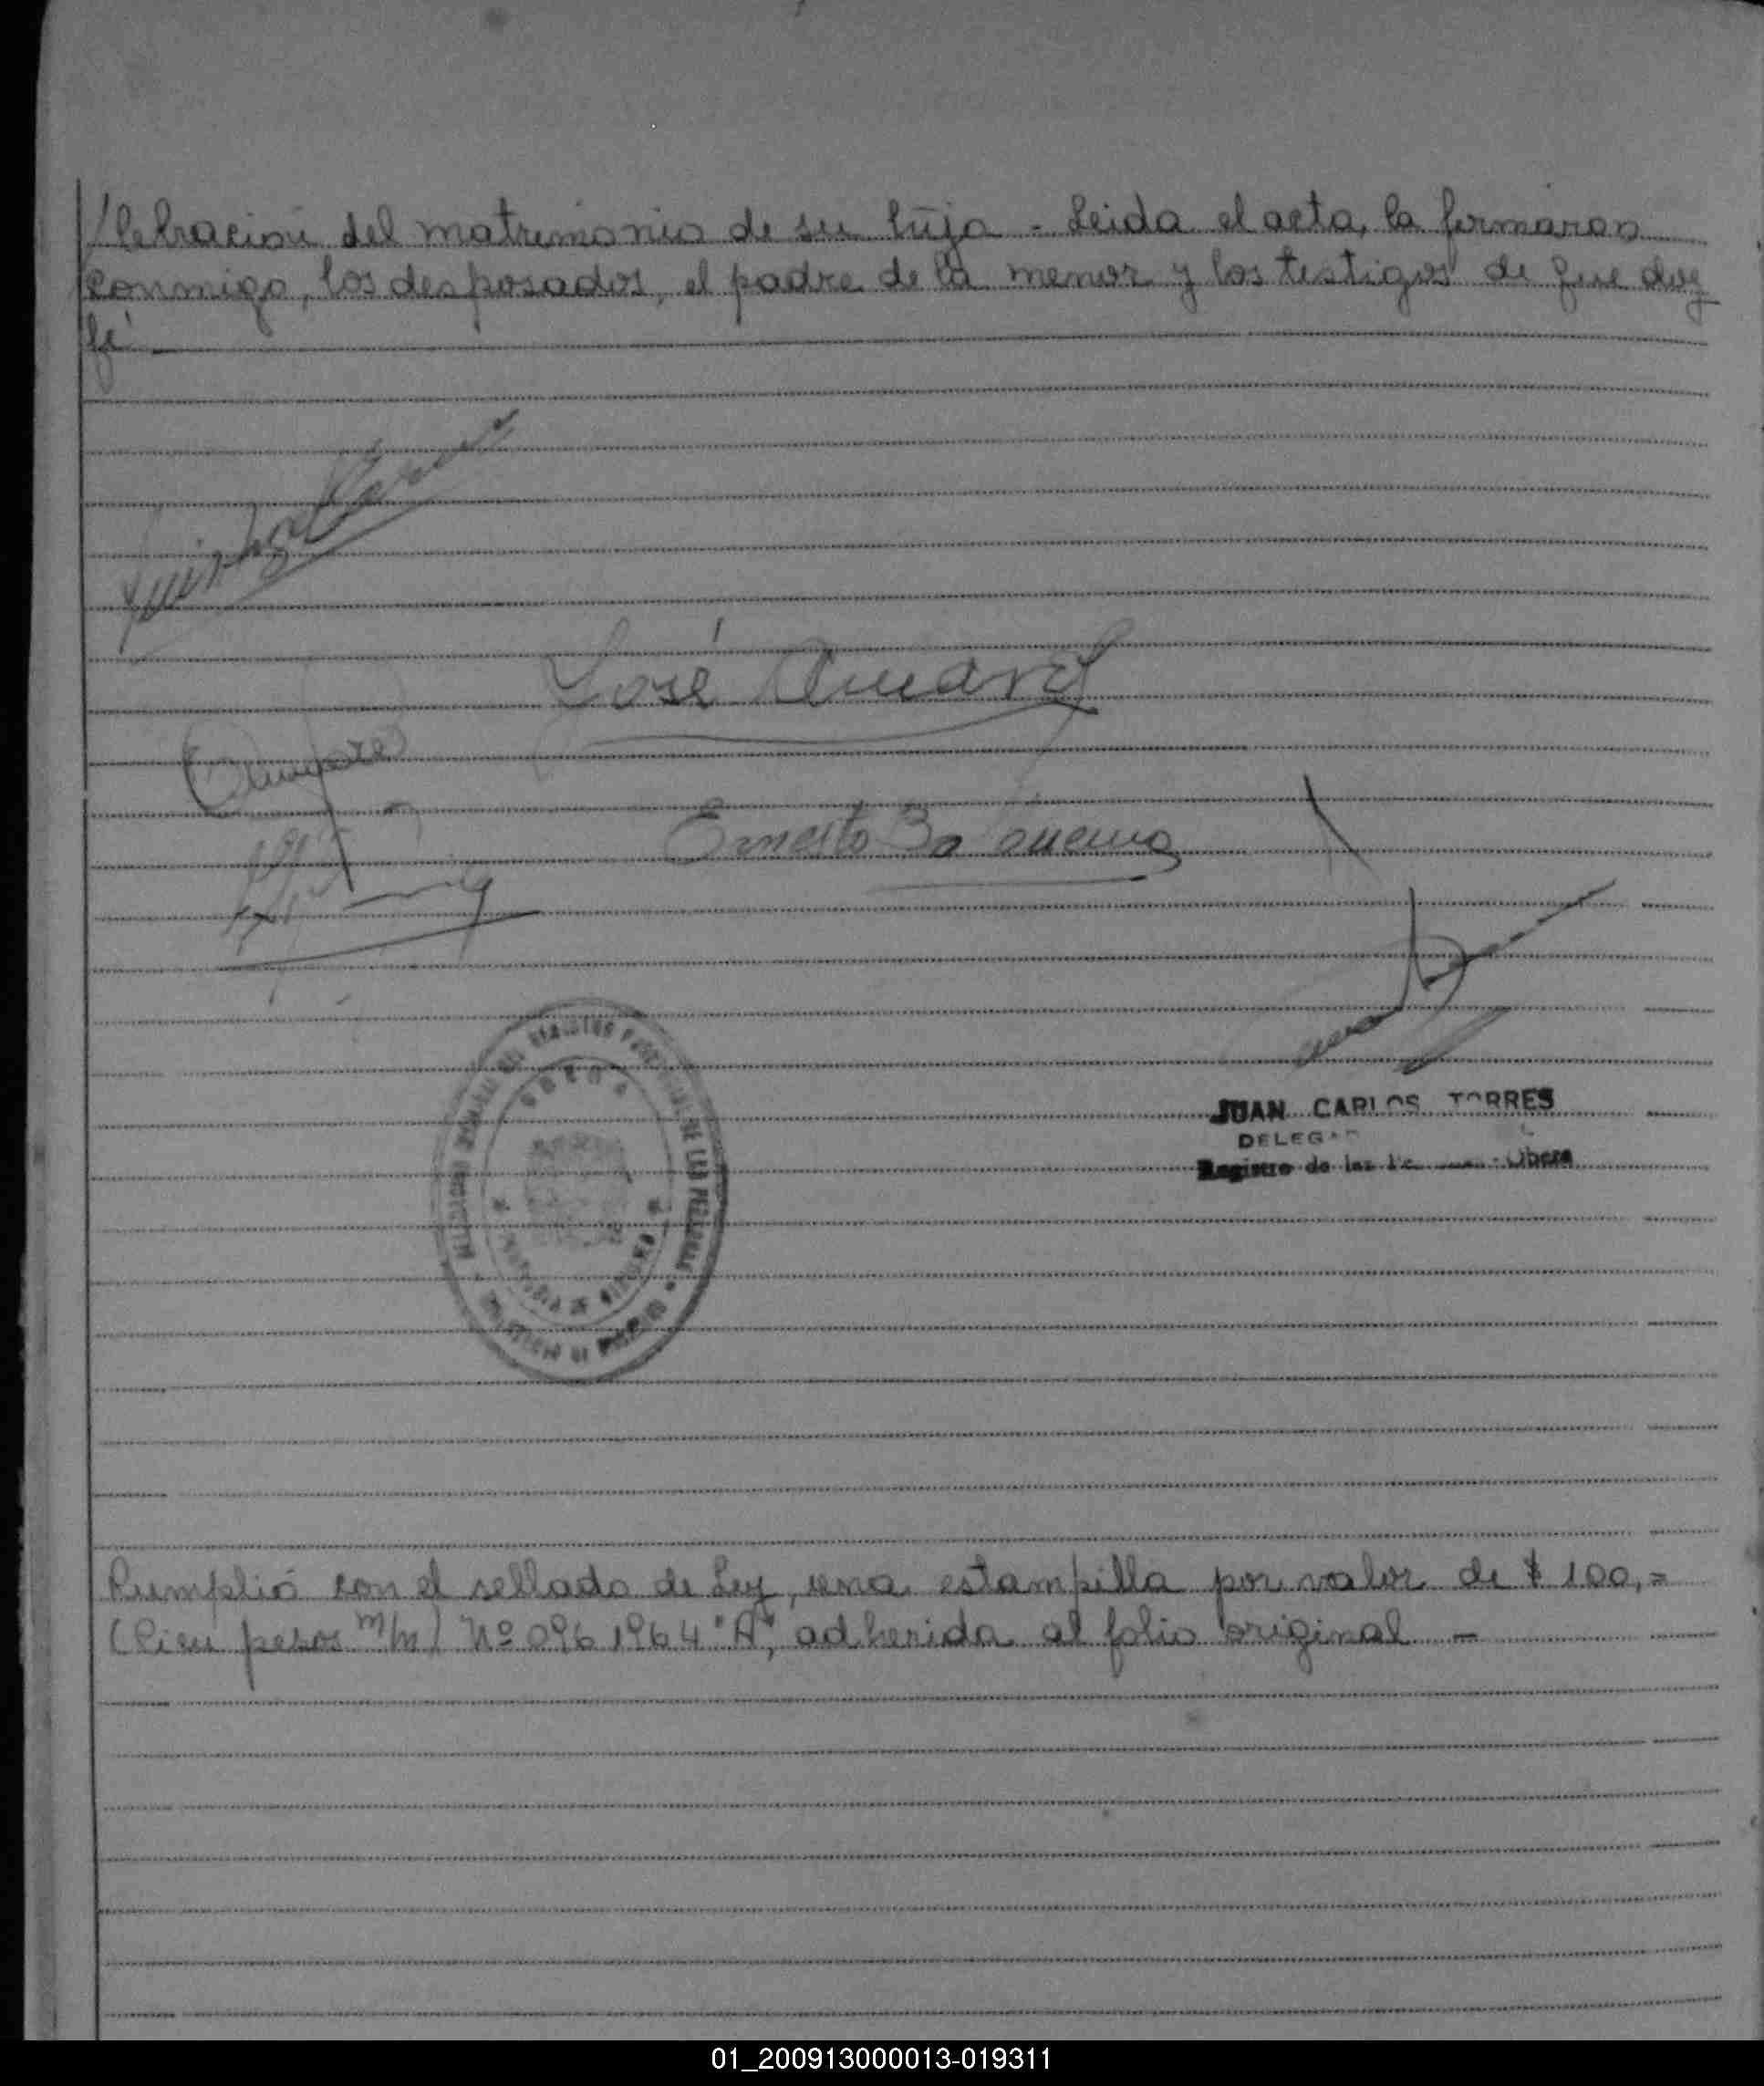 /lebración del matrimonio de su hija - Leida el acta, la firmaron
conmigo, los desposados, el padre de la menor y los testigos de que doy
fé
José Amaral
Ernesto
JUAN CARLOS TORRES
DELEGAD
Registro de las Pe Obera
REGISTRO PROVINCIAL DE LAS PERSONAS
OBERA
Cumplió con el sellado de Ley, una estampilla por valor de $ 100,=
(Cien pesos m/n) Nº 0961964 "A", adherida al folio original -
01_200913000013-019311